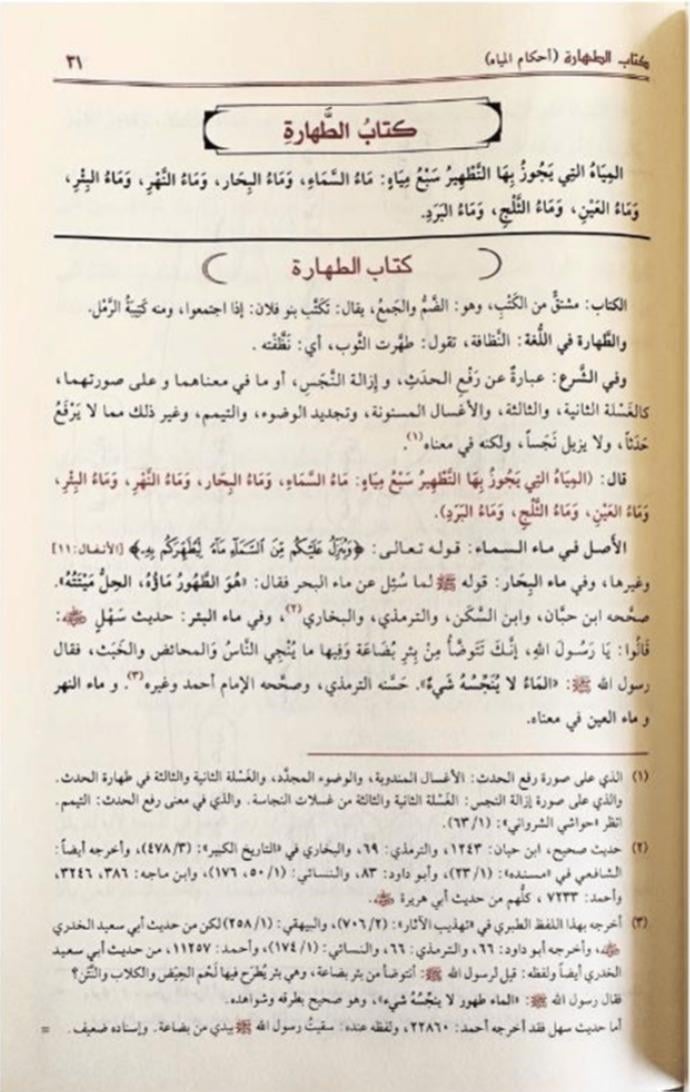 كتاب الطهارة (أحكام المياه)
٣١
كتابُ الطَّهارةِ
المِيَاهُ التِي يَجُوزُ بِهَا التَّطْهِيرُ سَبْعُ مِيَاهٍ: مَاءُ السَّمَاءِ، وَمَاءُ البِحَارِ، وَمَاءُ النَّهْرِ، وَمَاءُ البِئْرِ،
وَمَاءُ العَيْنِ، وَمَاءُ الثَّلْجِ، وَمَاءُ البَرَدِ.
كتاب الطهارة
الكتاب: مشتقٌّ من الكَتْبِ، وهو: الضَّمُّ والجَمعُ، يقال: تَكَتَّب بنو فلان: إذا اجتمعوا، ومنه كَتِيبَةُ الرَّمْل.
والطَّهارة في اللُّغة: النَّظافة، تقول: طهَّرت الثَّوب، أي: نَظَّفْته.
وفي الشَّرع: عبارةٌ عن رَفْعِ الحدَثِ، و إزالة النَّجَسِ، أو ما في معناهما و على صورتهما،
كالغَسْلة الثانية، والثالثة، والأغسال المسنونة، وتجديد الوضوء، والتيمم، وغير ذلك مما لا يَرْفَعُ
حَدَثاً، ولا يزيل نَجَساً، ولكنه في معناه(١).
قال: (المِيَاهُ التِي يَجُوزُ بِهَا التَّطْهِيرُ سَبْعُ مِيَاهٍ: مَاءُ السَّمَاءِ، وَمَاءُ البِحَارِ، وَمَاءُ النَّهْرِ، وَمَاءُ البِئْرِ،
وَمَاءُ العَيْنِ، وَمَاءُ الثَّلْجِ، وَمَاءُ البَرَدِ).
الأَصل في ماء السـماء: قـولـه تـعـالـى: ﴿وَيُنَزِّلُ عَلَيْكُم مِّنَ ٱلسَّمَآءِ مَآءً لِّيُطَهِّرَكُم بِهِۦ﴾ [الأنفال: ١١]
وغيرها، وفي ماء البِحَار: قوله ﷺ لما سُئِل عن ماء البحر فقال: «هُوَ الطَّهُورُ مَاؤُهُ، الحِلُّ مَيْتَتُهُ».
صحَّحه ابن حبَّان، وابن السَّكَن، والترمذي، والبخاري(٢)، وفي ماء البئر: حديث سَهْلٍ ﵁:
قَالُوا: يَا رَسُولَ اللهِ، إِنَّكَ تَتَوَضَّأُ مِنْ بِئرِ بُضَاعَة وَفِيها ما يُنْجِي النَّاسُ وَالمحائض والخَبَث، فقال
رسول الله ﷺ: «المَاءُ لا يُنَجِّسُهُ شَيءٌ». حَسَّنه الترمذي، وصحَّحه الإمام أحمد وغيره(٣). و ماء النهر
و ماء العين في معناه.
(١) الذي على صورة رفع الحدث: الأغسال المندوبة، والوضوء المجدَّد، والغَسْلة الثانية والثالثة في طهارة الحدث.
والذي على صورة إزالة النجس: الغَسْلة الثانية والثالثة من غسلات النجاسة. والذي في معنى رفع الحدث: التيمم.
انظر «حواشي الشرواني»: (٦٣/١).
(٢) حديث صحيح، ابن حبان: ١٢٤٣، والترمذي: ٦٩، والبخاري في «التاريخ الكبير»: (٤٧٨/٣)، وأخرجه أيضاً:
الشافعي في «مسنده»: (٢٣/١)، وأبو داود: ٨٣، والنسائي: (٥٠/١، ١٧٦)، وابن ماجه: ٣٨٦، ٣٢٤٦،
وأحمد: ٧٢٣٣، كلُّهم من حديث أبي هريرة ﵁.
(٣) أخرجه بهذا اللفظ الطبري في «تهذيب الآثار»: (٧٠٦/٢)، والبيهقي: (٢٥٨/١) لكن من حديث أبي سعيد الخدري
﵁، وأخرجه أبو داود: ٦٦، والترمذي: ٦٦، والنسائي: (١٧٤/١)، وأحمد: ١١٢٥٧، من حديث أبي سعيد
الخدري أيضاً ولفظه: قيل لرسول الله ﷺ: أنتوضأ من بئر بضاعة، وهي بئر يُطرَح فيها لَحْم الحِيَض والكلاب والنَّتَن؟
فقال رسول الله ﷺ: «الماء طهور لا ينجِّسُه شيء»، وهو صحيح بطرقه وشواهده.
أما حديث سهل فقد أخرجه أحمد: ٢٢٨٦٠، ولفظه عنده: سقيتُ رسول الله ﷺ بيدي من بضاعة. وإسناده ضعيف. =